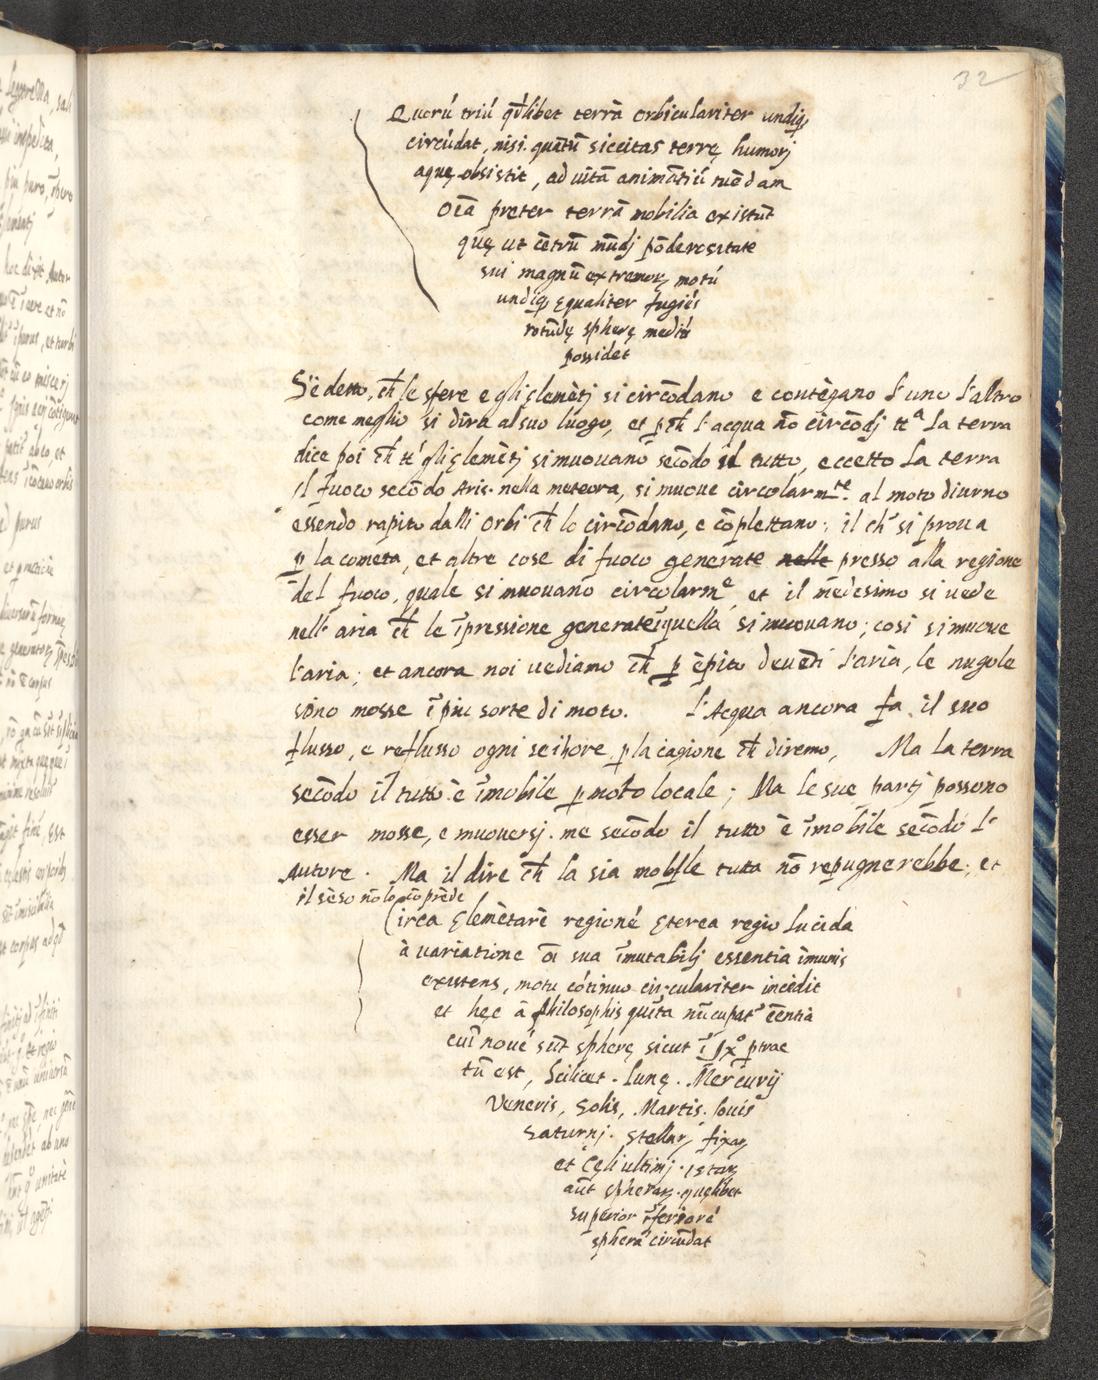 32
Quorū triū q̄dlibet terrā orbiculariter undiq
circūdat, nisi quātū siccitas terrę humorj
aquę obsistit, ad uitā animātiū tuēdam
Oīa preter terrā mobilia existūt
quę ut cētrū mūdj pōderositate
sui magnū extremorz motū
undiq ęqualiter fugiēs
rotūdę spherę mediū
possidet
S'è detto, ch̄ le sfere e gli ęlemētj si circōdano e contēgano l'uno l'altro
come meglio si dira al suo luogo, et pch̄ l'acqua nō circōdj tt^a la terra
dice poi ch̄ tt' gli ęlemētj si muouano secōdo il tutto, eccetto la terra
il fuoco secōdo Aris. nella meteora, si muoue circolarm^te. al moto diurno
essendo rapito dalli orbi ch̄ lo circōdano, e cōplettano; il ch' si proua
p la cometa, et altre cose di fuoco generate nelle presso alla regione
del fuoco, quale si muouano circolarm^e, et il medesimo si uede
nell' aria ch̄ le īpressione generate ī quella si muouano; cosi si muoue
l'aria; et ancora noi uediamo ch̄ p ēpito de uēti l'aria, le nugole
sono mosse ī piu sorte di moto. L'Acqua ancora fa il suo
flusso, e reflusso ogni sei hore p la cagione ch̄ diremo, Ma la terra
secōdo il tutto è īmobile p moto locale; Ma le sue partj possono
esser mosse, e muouersj. me secōdo il tutto è īmobile secōdo l'
Autore. Ma il dire ch̄ la sia mobile tutta nō repugnerebbe; et
il sēso nō lo cōprēde
Circa ęlemētarē regionē ęterea regio lucida
à uariatione oī sua īmutabilj essentia īmunis
existens, motu cōtinuo circulariter incedit
et hęc ā philosophis quīta nūcupat' eēntia
cui' nouē sūt spherę sicut ī px° ptrac
tū est, Scilicet. Lunę. Mercurij
Veneris, Solis, Martis. Iouis
Saturnj. Stellarz fixarz
et Cęli ultimj. Istarz
aūt spherarz. quęlibet
superior īferiorē
spherā circūdat